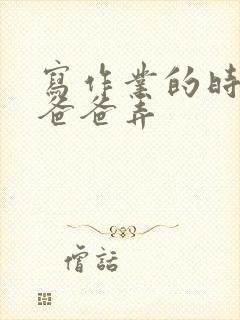 寫作業的時
爸爸弄
僧話